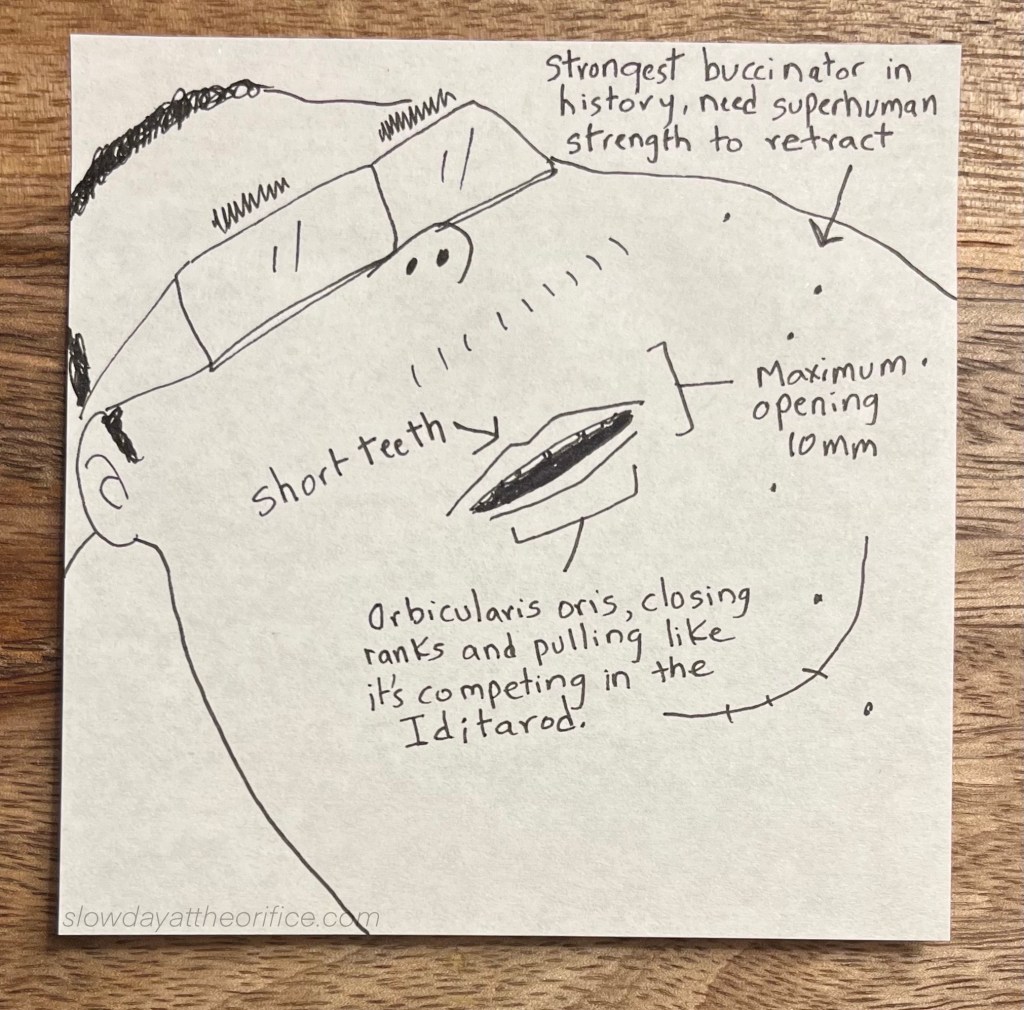 Strongest buccinator in
history, need superhuman
strength to retract
Maximum
opening
10mm
short teeth
Orbicularis oris, closing
ranks and pulling like
it's competing in the
Iditarod.
slowdayattheorifice.com